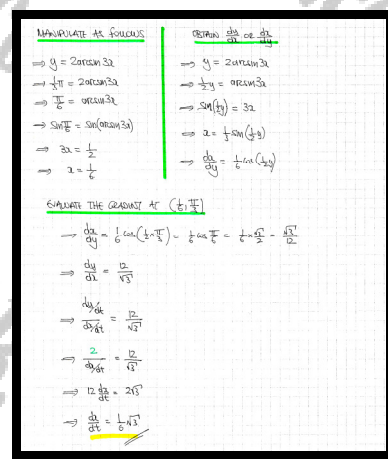 MANIPULATE AS FOLLOWS
⇒ y = 2arcsin3x
⇒ ⅓π = 2arcsin3x
⇒ π/6 = arcsin3x
⇒ sin π/6 = sin(arcsin3x)
⇒ 3x = 1/2
⇒ x = 1/6
OBTAIN dy/dx OR dx/dy
⇒ y = 2arcsin3x
⇒ ½y = arcsin3x
⇒ sin(½y) = 3x
⇒ x = ⅓ sin(½y)
⇒ dx/dy = 1/6 cos(½y)
EVALUATE THE GRADIENT AT (1/6, π/3)
⇒ dx/dy = 1/6 cos(½×π/3) = 1/6 cos π/6 = 1/6 × √3/2 = √3/12
⇒ dy/dx = 12/√3
⇒ (dy/dt)/(dx/dt) = 12/√3
⇒ 2/(dx/dt) = 12/√3
⇒ 12 dx/dt = 2√3
⇒ dx/dt = 1/6 √3